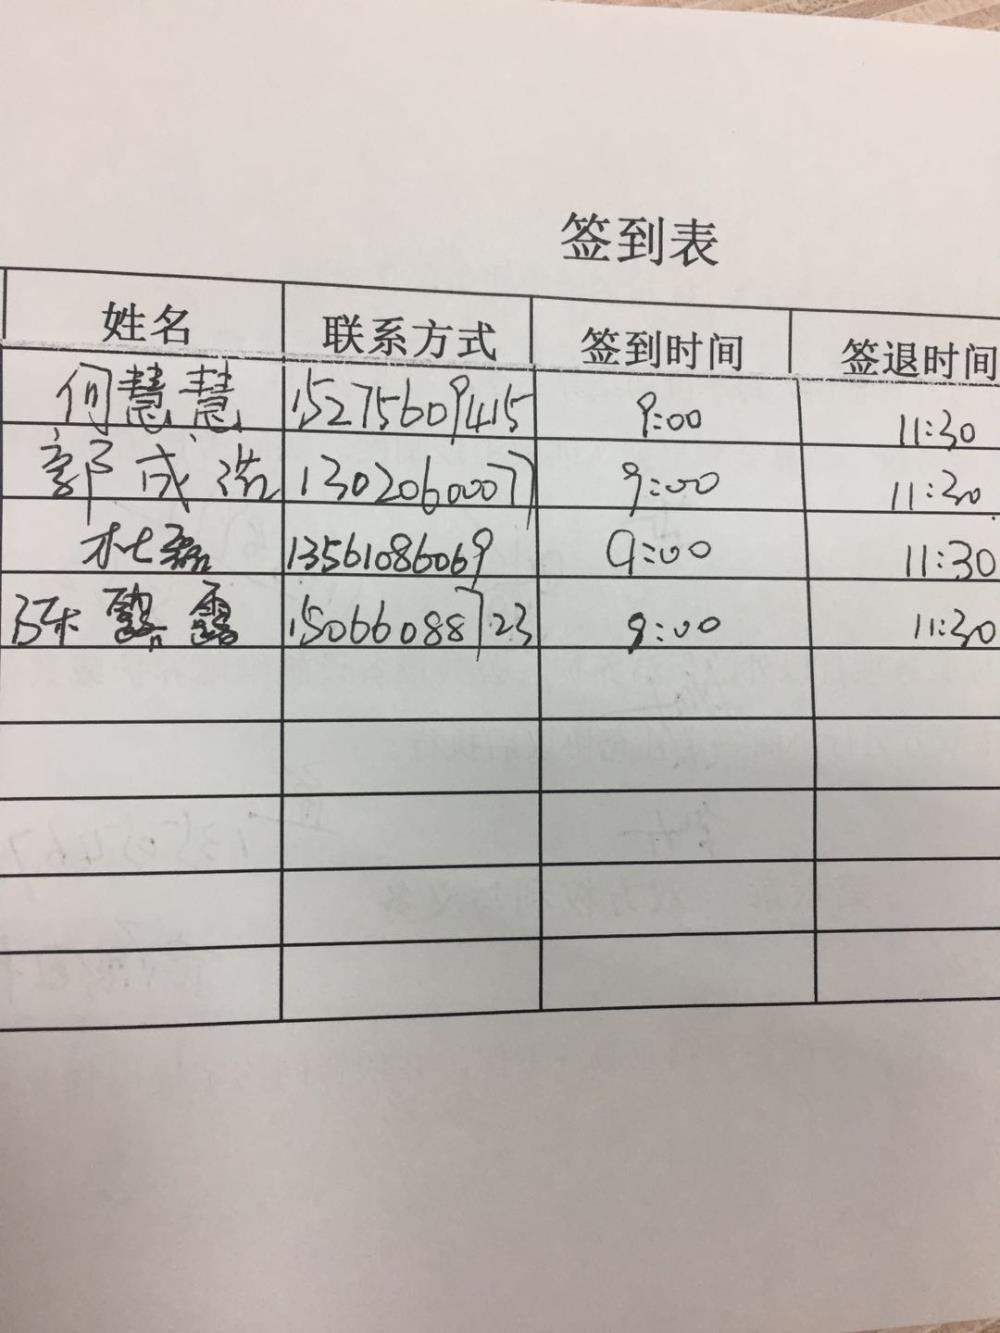 签到表
姓名 联系方式 签到时间 签退时间
何慧慧 15275609415 9:00 11:30
郭成浩 13020600077 9:00 11:30
杜磊 13561086069 9:00 11:30
陈馨露 15066088723 9:00 11:30